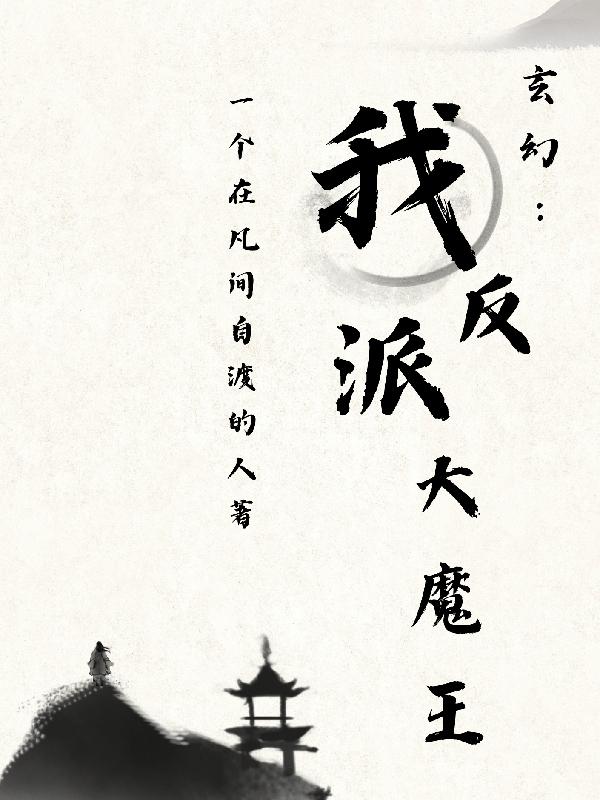 玄幻：
我反派大魔王
一个在凡间自渡的人著